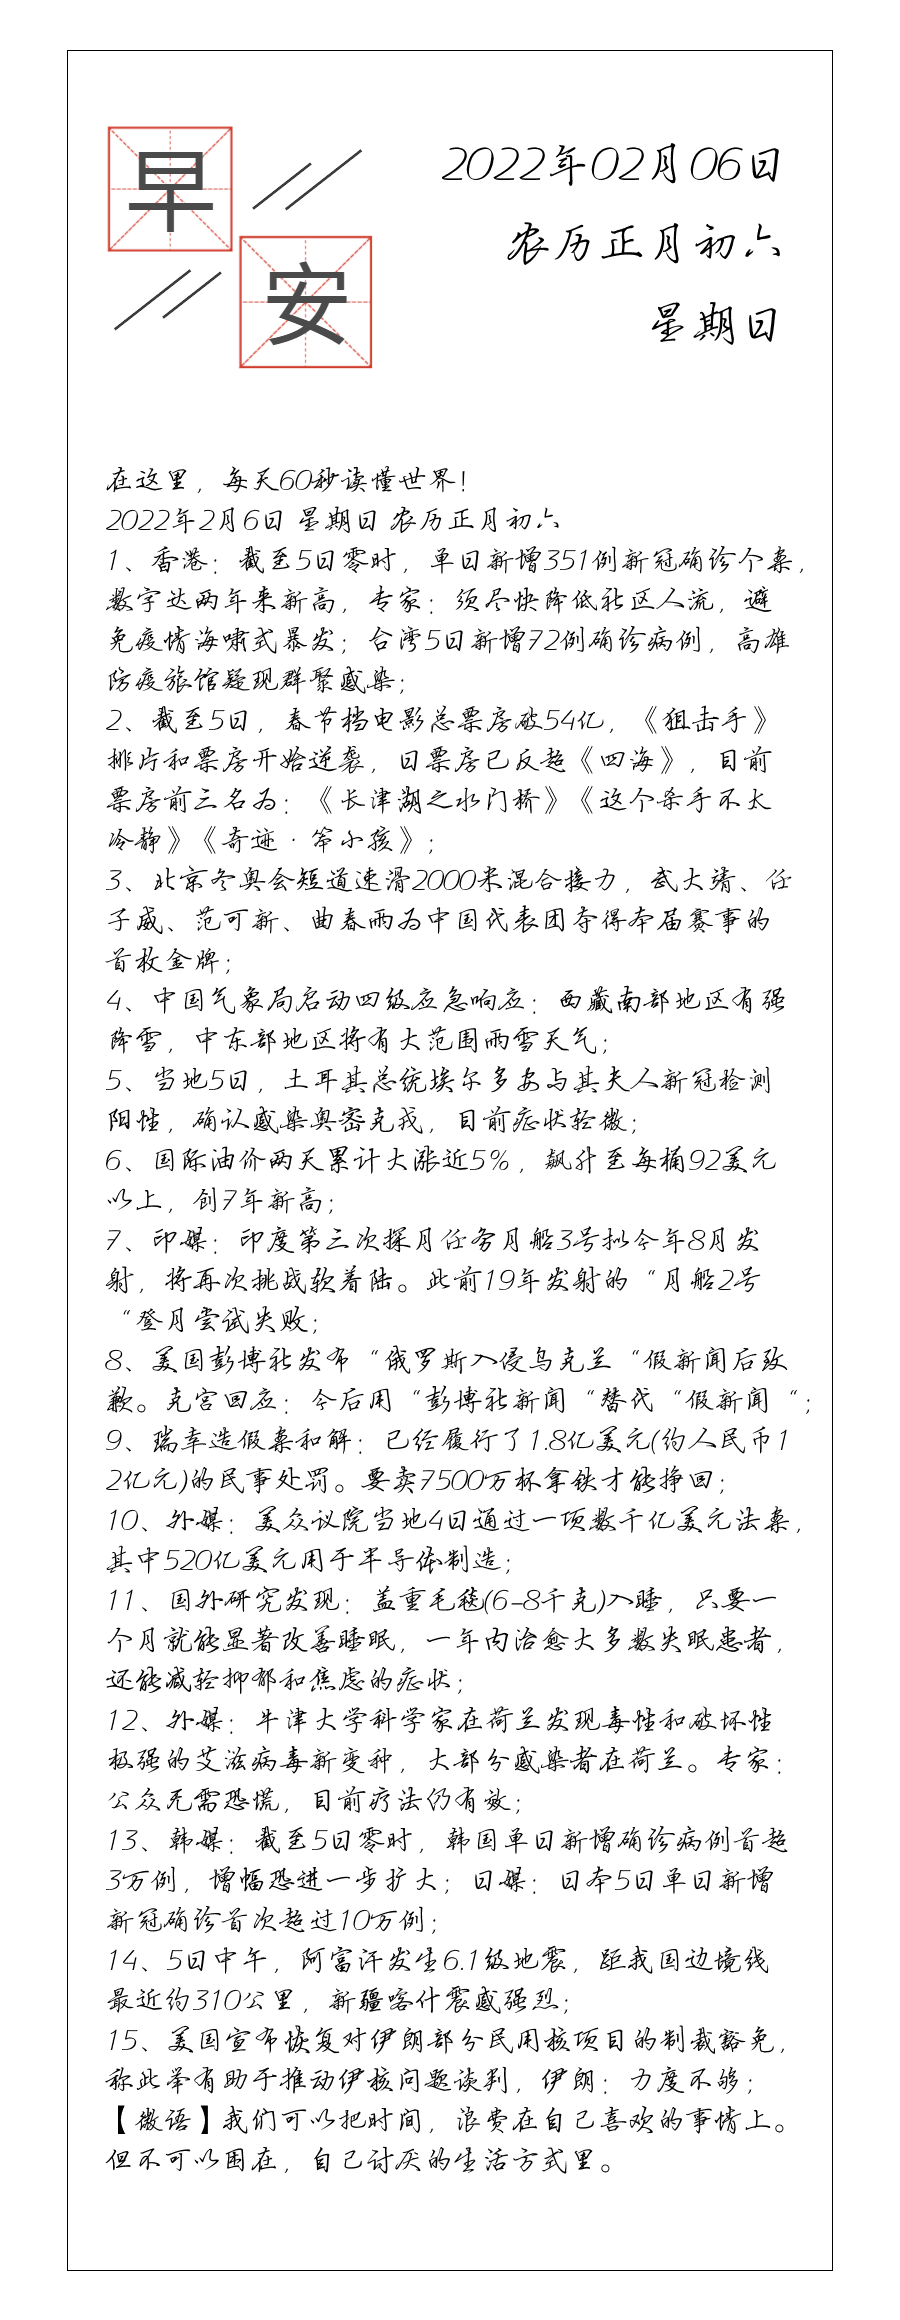 早
安
2022年02月06日
农历正月初六
星期日
在这里，每天60秒读懂世界！
2022年2月6日 星期日 农历正月初六
1、香港：截至5日零时，单日新增351例新冠确诊个案，
数字达两年来新高，专家：须尽快降低社区人流，避
免疫情海啸式暴发；台湾5日新增72例确诊病例，高雄
防疫旅馆疑现群聚感染；
2、截至5日，春节档电影总票房破54亿，《狙击手》
排片和票房开始逆袭，日票房已反超《四海》，目前
票房前三名为：《长津湖之水门桥》《这个杀手不太
冷静》《奇迹·笨小孩》；
3、北京冬奥会短道速滑2000米混合接力，武大靖、任
子威、范可新、曲春雨为中国代表团夺得本届赛事的
首枚金牌；
4、中国气象局启动四级应急响应：西藏南部地区有强
降雪，中东部地区将有大范围雨雪天气；
5、当地5日，土耳其总统埃尔多安与其夫人新冠检测
阳性，确认感染奥密克戎，目前症状轻微；
6、国际油价两天累计大涨近5%，飙升至每桶92美元
以上，创7年新高；
7、印媒：印度第三次探月任务月船3号拟今年8月发
射，将再次挑战软着陆。此前19年发射的“月船2号
“登月尝试失败；
8、美国彭博社发布“俄罗斯入侵乌克兰“假新闻后致
歉。克宫回应：今后用“彭博社新闻“替代“假新闻“；
9、瑞幸造假案和解：已经履行了1.8亿美元(约人民币1
2亿元)的民事处罚。要卖7500万杯拿铁才能挣回；
10、外媒：美众议院当地4日通过一项数千亿美元法案，
其中520亿美元用于半导体制造；
11、国外研究发现：盖重毛毯(6-8千克)入睡，只要一
个月就能显著改善睡眠，一年内治愈大多数失眠患者，
还能减轻抑郁和焦虑的症状；
12、外媒：牛津大学科学家在荷兰发现毒性和破坏性
极强的艾滋病毒新变种，大部分感染者在荷兰。专家：
公众无需恐慌，目前疗法仍有效；
13、韩媒：截至5日零时，韩国单日新增确诊病例首超
3万例，增幅恐进一步扩大；日媒：日本5日单日新增
新冠确诊首次超过10万例；
14、5日中午，阿富汗发生6.1级地震，距我国边境线
最近约310公里，新疆喀什震感强烈；
15、美国宣布恢复对伊朗部分民用核项目的制裁豁免，
称此举有助于推动伊核问题谈判，伊朗：力度不够；
【微语】我们可以把时间，浪费在自己喜欢的事情上。
但不可以困在，自己讨厌的生活方式里。